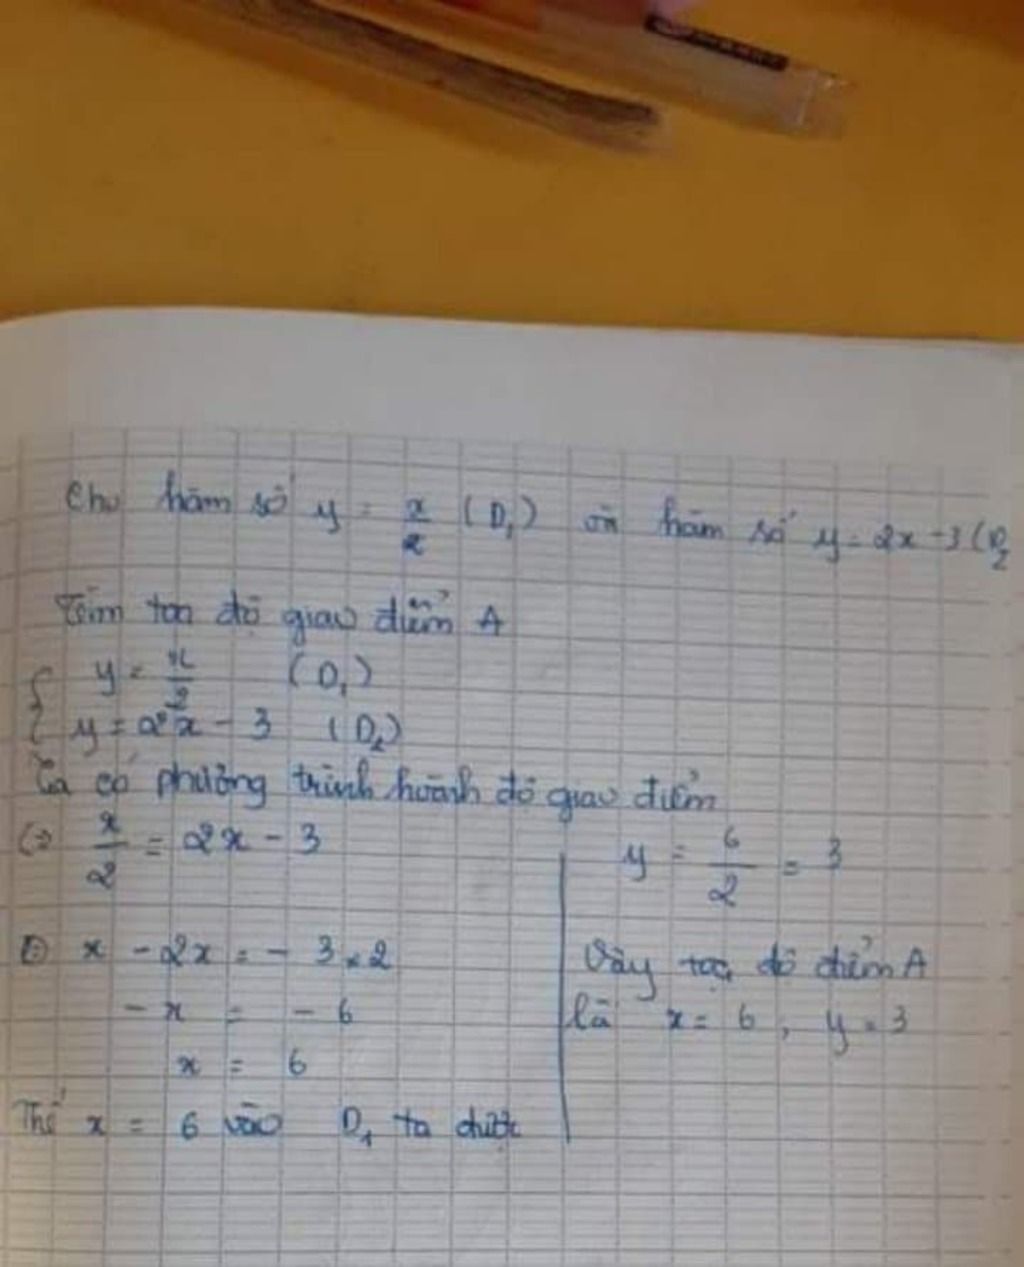 Cho hàm số y = x/2 (D₁) và hàm số y = 2x - 3 (D₂
Tìm toạ độ giao điểm A
{ y = x/2 (D₁)
y = 2x - 3 (D₂)
Ta có phương trình hoành độ giao điểm
(=> x/2 = 2x - 3
x - 2x = - 3 . 2
- x = - 6
x = 6
Thế x = 6 vào D₁ ta được
y = 6/2 = 3
Vậy toạ độ điểm A
là x = 6 , y = 3